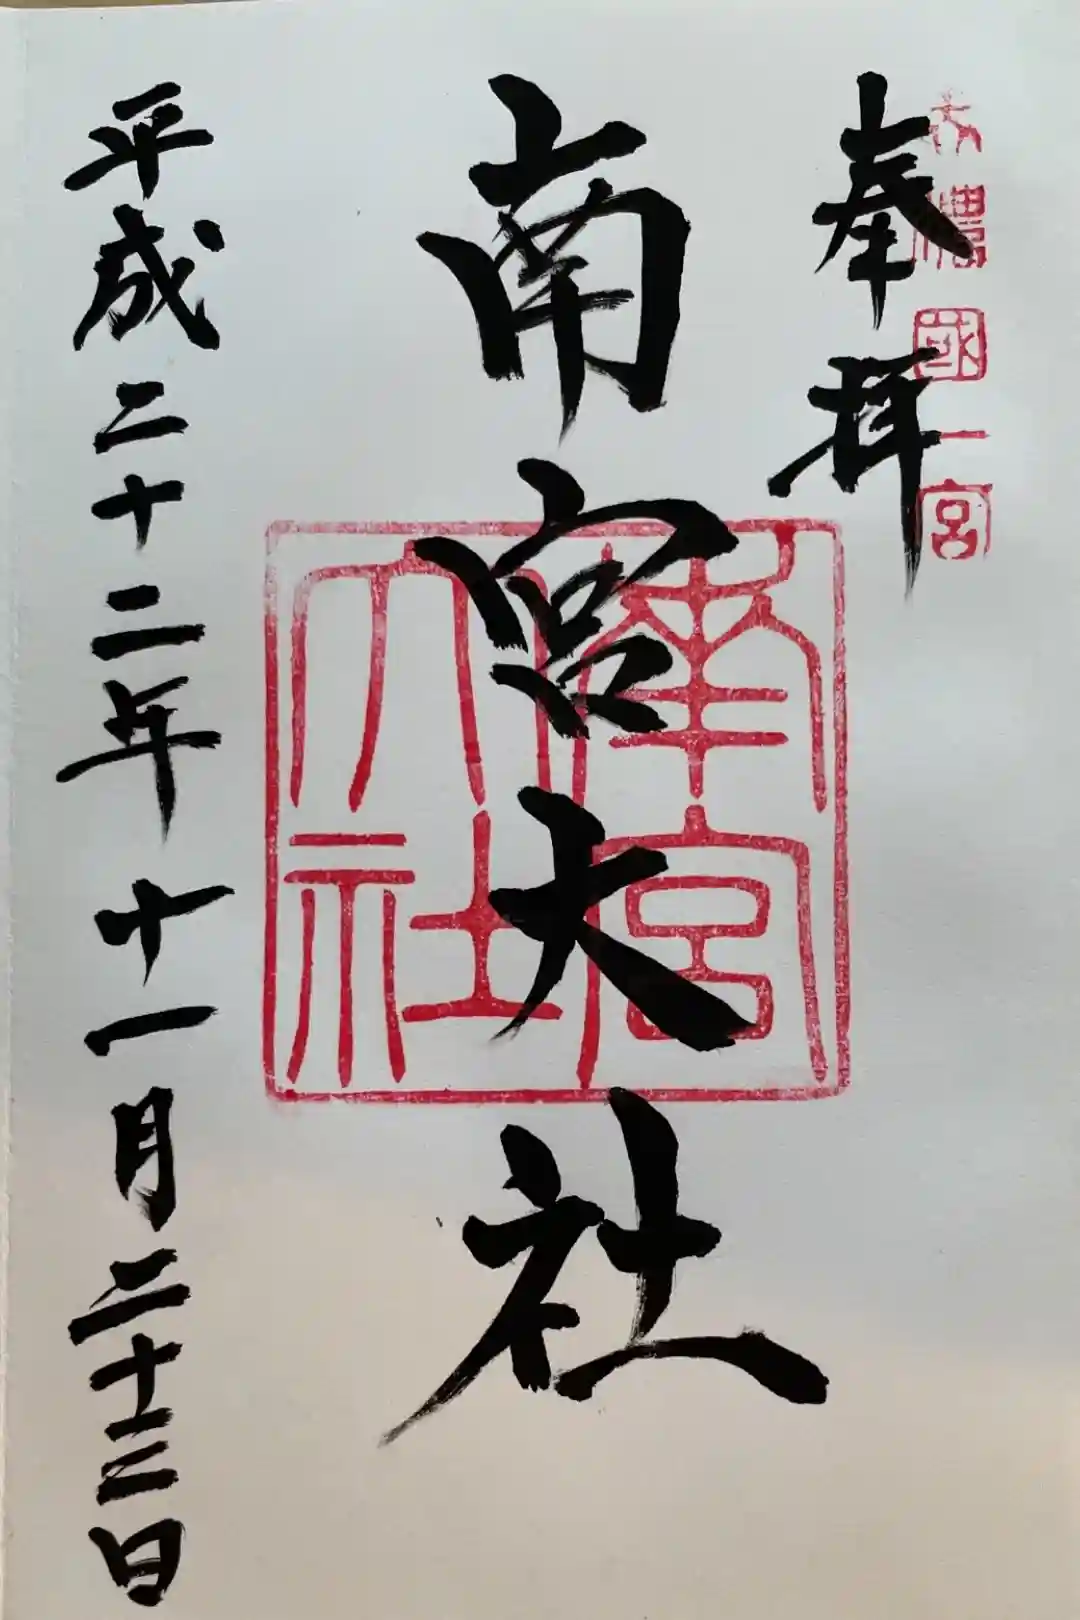 美濃國一宮
奉拝
南宮大社
南宮
大社
平成二十二年十一月二十三日